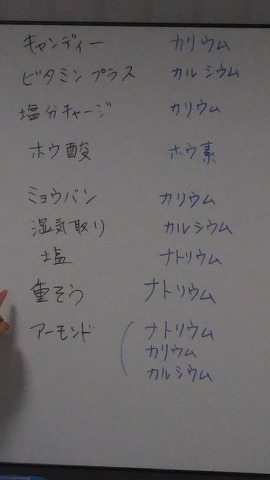 キャンディー カリウム
ビタミンプラス カルシウム
塩分チャージ カリウム
ホウ酸 ホウ素
ミョウバン カリウム
湿気取り カルシウム
塩 ナトリウム
重そう ナトリウム
アーモンド ナトリウム
カリウム
カルシウム